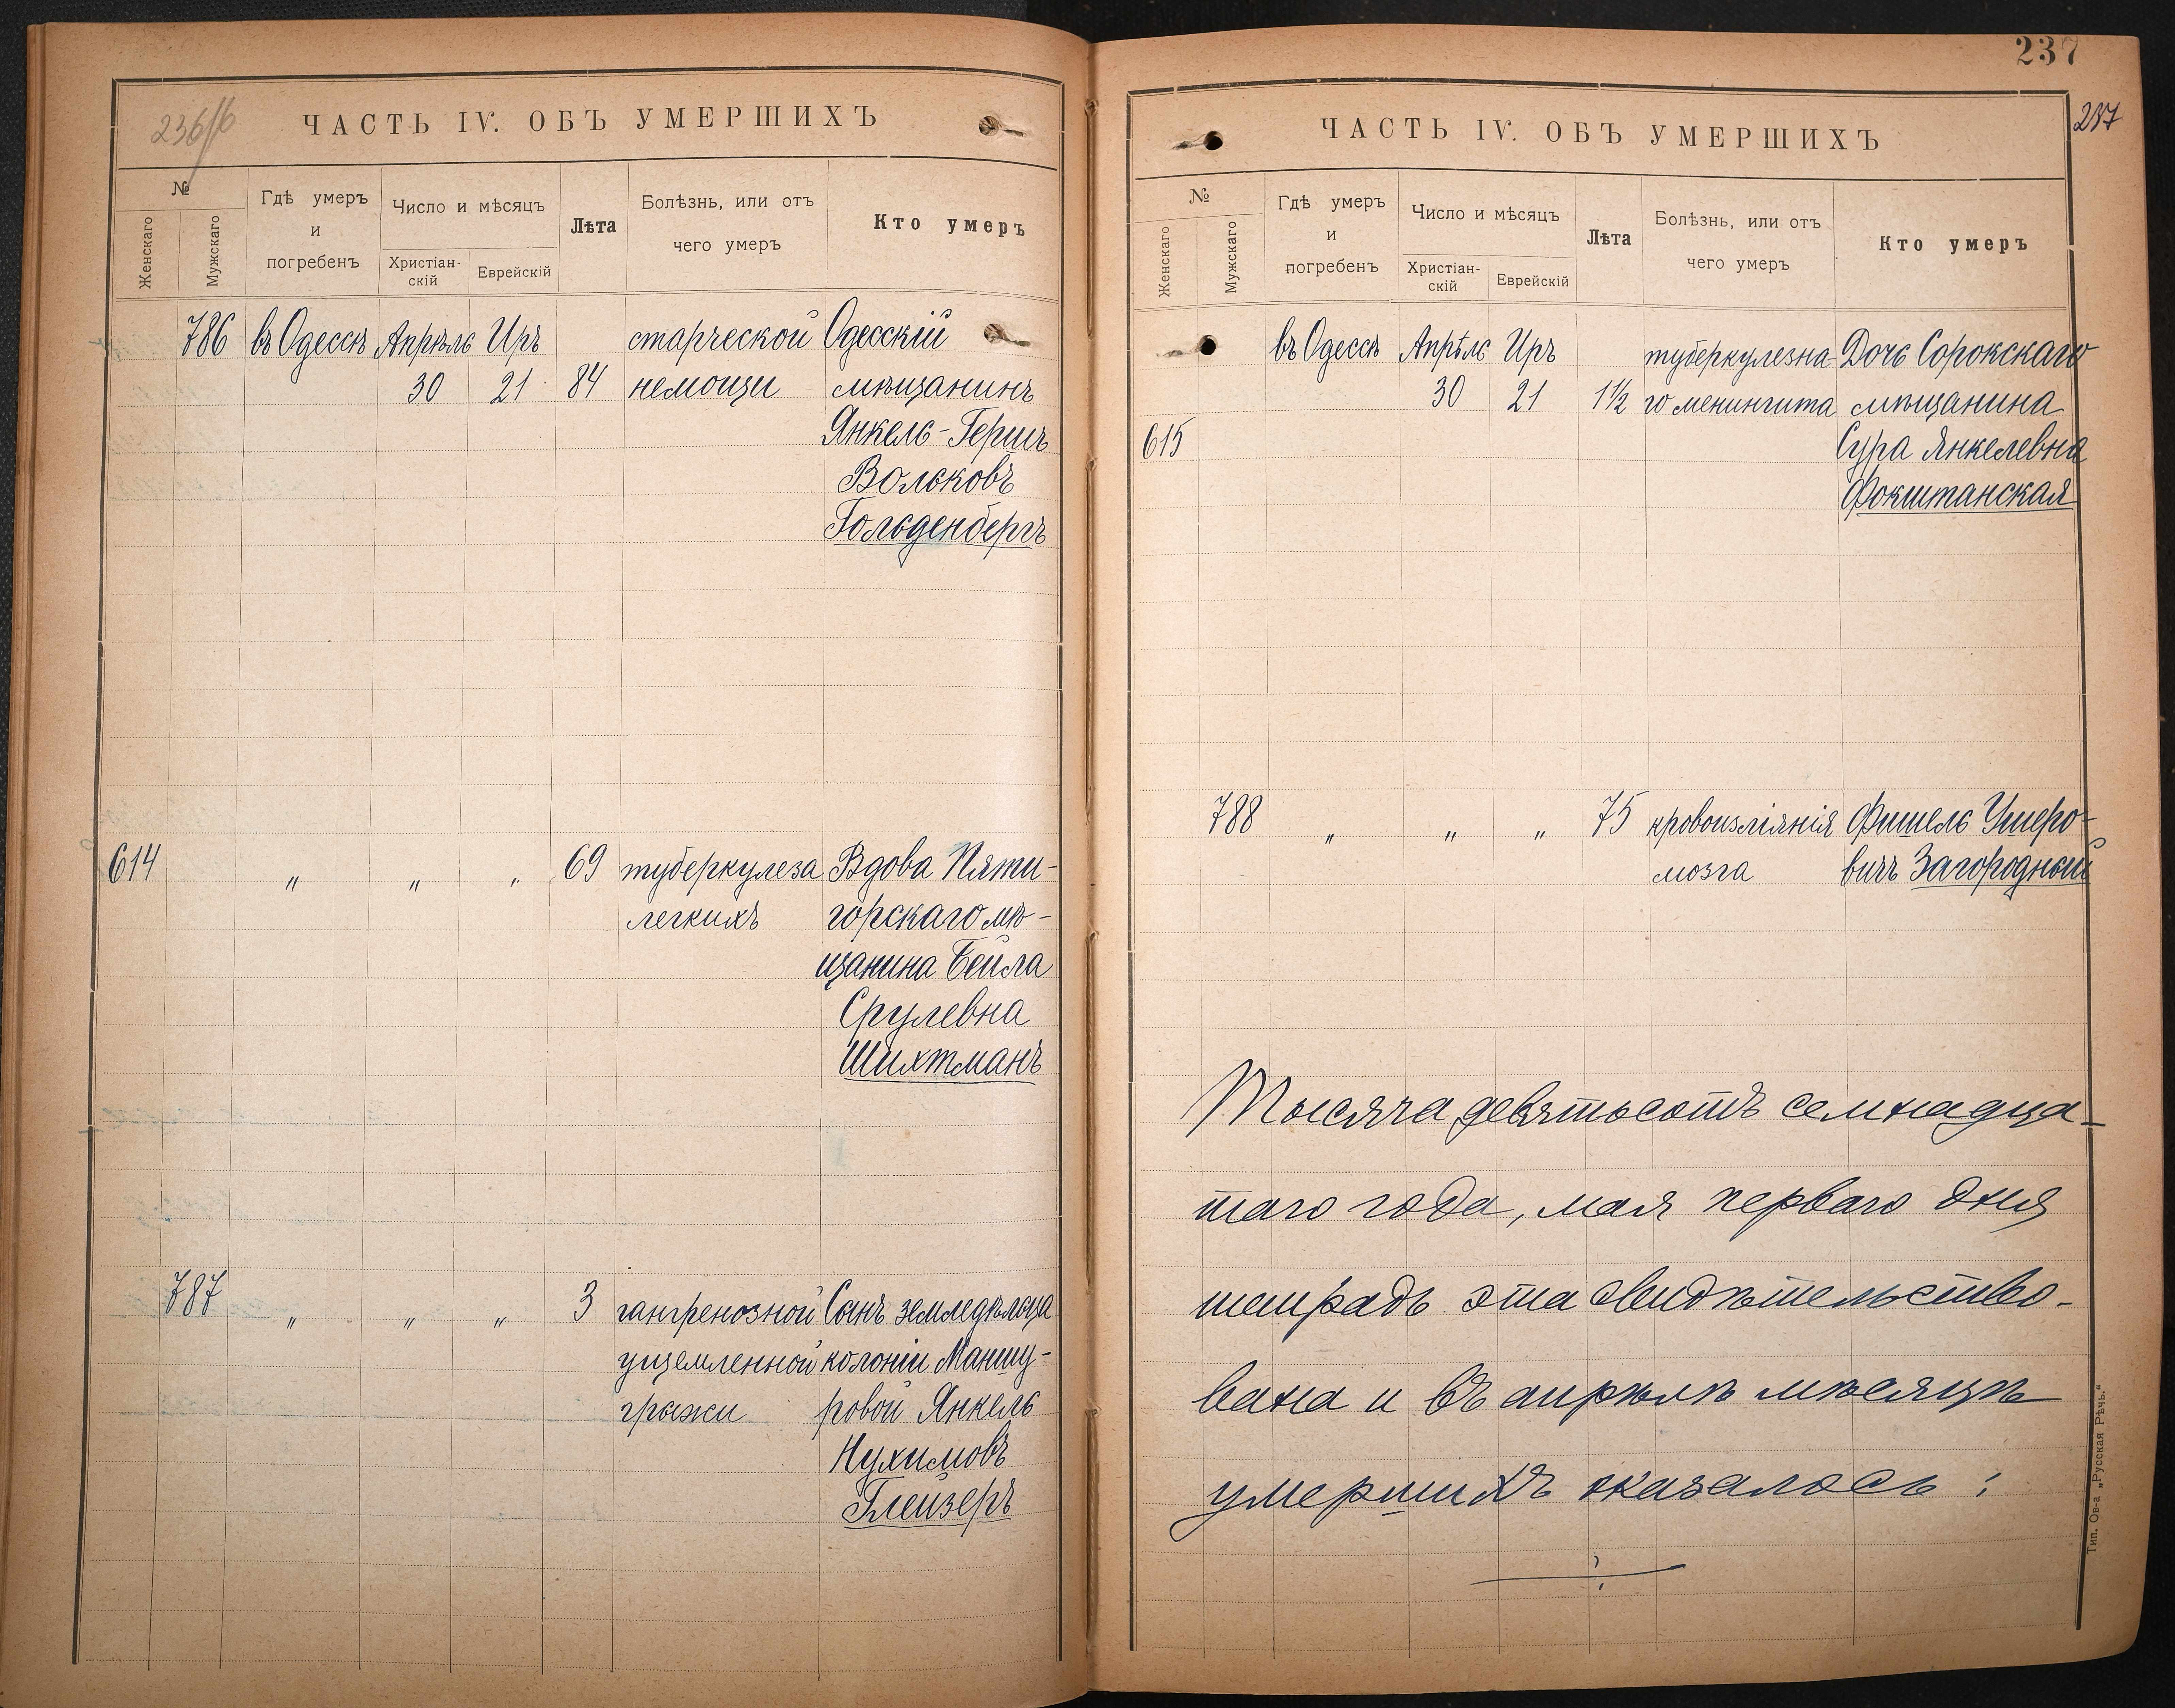 236/б
ЧАСТЬ IV. ОБЪ УМЕРШИХЪ
№
Женскаго
Мужскаго
Гдѣ умеръ
и
погребенъ
Число и мѣсяцъ
Христіан-
скій
Еврейскій
Лѣта
Болѣзнь, или отъ
чего умеръ
Кто умеръ
786 въ Одессѣ Апрѣль Иръ старческой Одесскій
30 21 84 немощи мѣщанинъ
Янкель-Гершъ
Вольковъ
Гольденбергъ
614 " " " 69 туберкулеза Вдова Пяти-
легкихъ горскаго мѣ-
щанина Бейла
Срулевна
Шихтманъ
787 " " " 3 гангренозной Сынъ земледѣльца
ущемленной колоніи Маншу-
грыжи ровой Янкель
Нухимовъ
Глейзеръ
237
237
ЧАСТЬ IV. ОБЪ УМЕРШИХЪ
№
Женскаго
Мужскаго
Гдѣ умеръ
и
погребенъ
Число и мѣсяцъ
Христіан-
скій
Еврейскій
Лѣта
Болѣзнь, или отъ
чего умеръ
Кто умеръ
въ Одессѣ Апрѣль Иръ туберкулезна- Дочь Сорокскаго
30 21 1½ го менингита мѣщанина
615 Сура Янкелевна
Фокштанская
788 " " " 75 кровоизліянія Фишель Ушеро-
мозга вичъ Загородный
Тысяча девятьсотъ семнадца-
таго года, мая перваго дня
тетрадь эта свидѣтельство-
вана и въ апрѣлѣ мѣсяцѣ
умершихъ оказалось:
Тип. Ов-а „Русская Рѣчь."